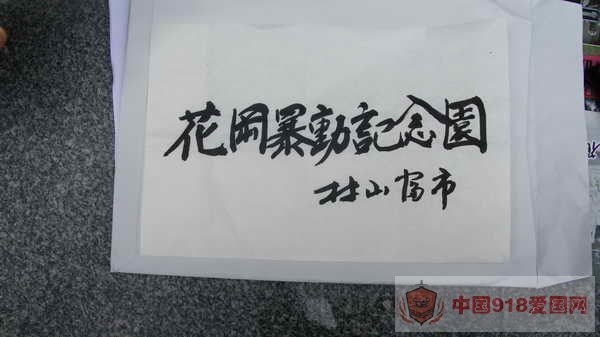 花岡暴動記念園
村山富市
中国918爱国网